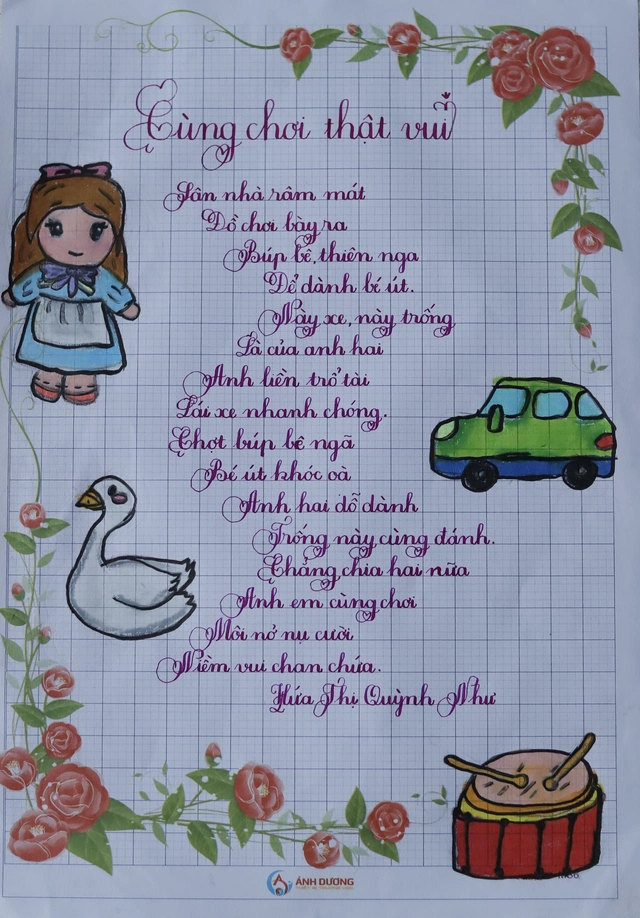 Cùng chơi thật vui
Sân nhà râm mát
Đồ chơi bày ra
Búp bê, thiên nga
Để dành bí út.
Này xe, này trống
Là của anh hai
Anh liền trổ tài
Lái xe nhanh chóng.
Chợt búp bê ngã
Bé út khóc oà
Anh hai dỗ dành
Trống này cùng đánh.
Chẳng chia hai nữa
Anh em cùng chơi
Môi nở nụ cười
Niềm vui chan chứa.
Hứa Thị Quỳnh Như
ÁNH DƯƠNG